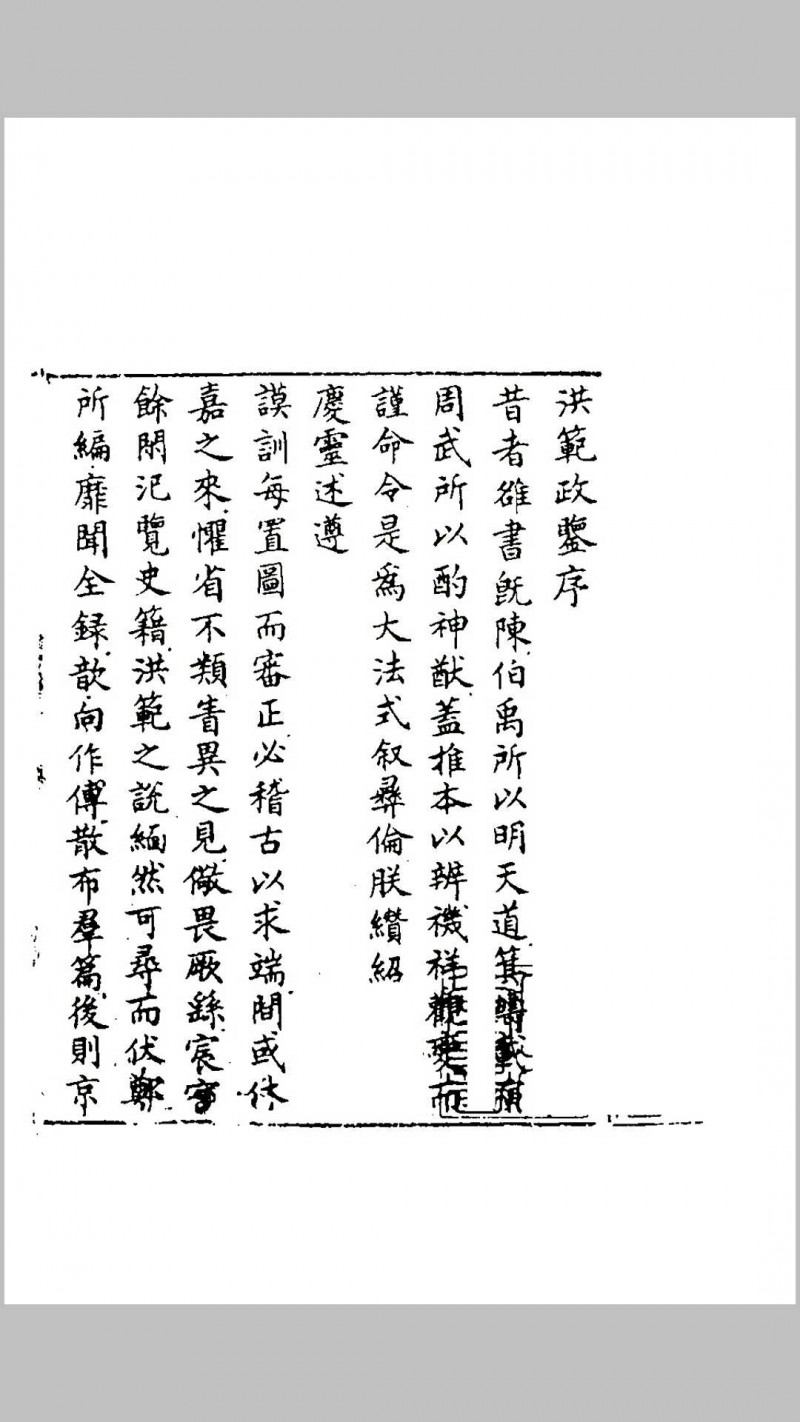 洪範政鑒序
昔者雒書旣陳伯禹所以明天道箕疇載演
周武所以酌神猷蓋推本以辨禨祥觀變而
謹命令是爲大法式叙彝倫朕纘紹
慶靈述遵
謨訓每置圖而審正必稽古以求端間或休
嘉之來懼省不類眚異之見儆畏厥繇宸
餘閑汜覽史籍洪範之說緬然可尋而伏鄭
所編靡聞全録歆向作傳散布羣篇後則京